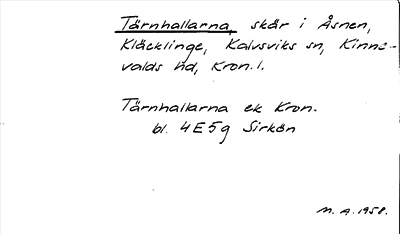 Tärnhallarna, skär i Åsnen,
Kläcklinge, Kalvsviks sn, Kinne-
valds hd, Kron. l.
Tärnhallarna ek Kron.
bl. 4E5g Sirkön
M. A. 1958.